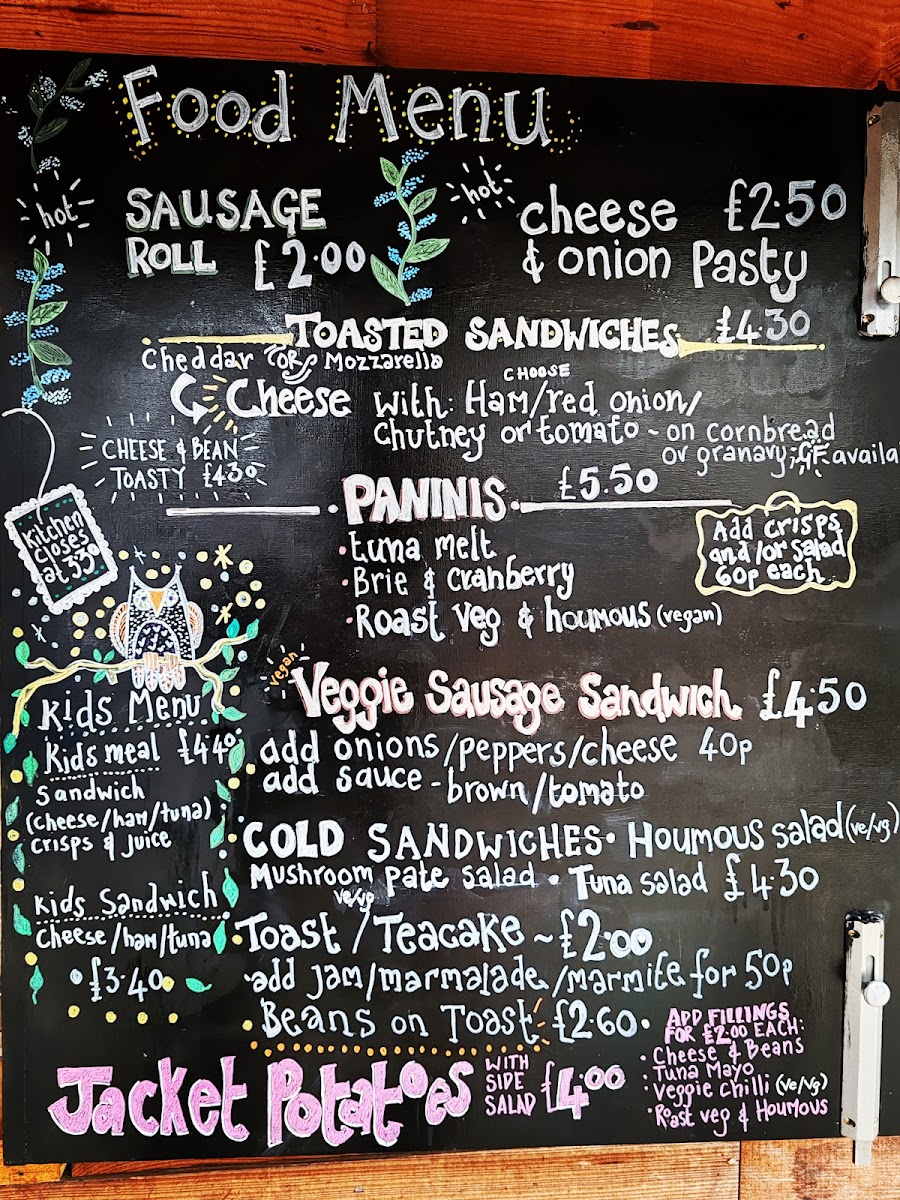 Food Menu
hot
SAUSAGE
ROLL £2.00
hot
cheese £2.50
& onion Pasty
TOASTED SANDWICHES £4.30
Cheddar or Mozzarella
CHOOSE
Cheese with: Ham/red onion/
chutney or tomato - on cornbread
or granary; GF availa
CHEESE & BEAN
TOASTY £4.30
Kitchen
closes
at 3:30
PANINIS £5.50
• tuna melt
• Brie & cranberry
• Roast Veg & houmous (vegan)
Add crisps
and/or salad
60p each
vegan
Veggie Sausage Sandwich £4.50
add onions/peppers/cheese 40p
add sauce - brown/tomato
Kids Menu
Kids meal £4.40
Sandwich
(cheese/ham/tuna)
crisps & juice
Kids Sandwich
Cheese/ham/tuna
£3.40
COLD SANDWICHES • Houmous salad (ve/vg)
Mushroom pate salad • Tuna salad £4.30
ve/vg
Toast / Teacake ~ £2.00
add jam/marmalade/marmite for 50p
Beans on Toast £2.60
Jacket Potatoes WITH
SIDE
SALAD £4.00
ADD FILLINGS
FOR £2.00 EACH:
• Cheese & Beans
• Tuna Mayo
• Veggie chilli (ve/vg)
• Roast veg & Houmous